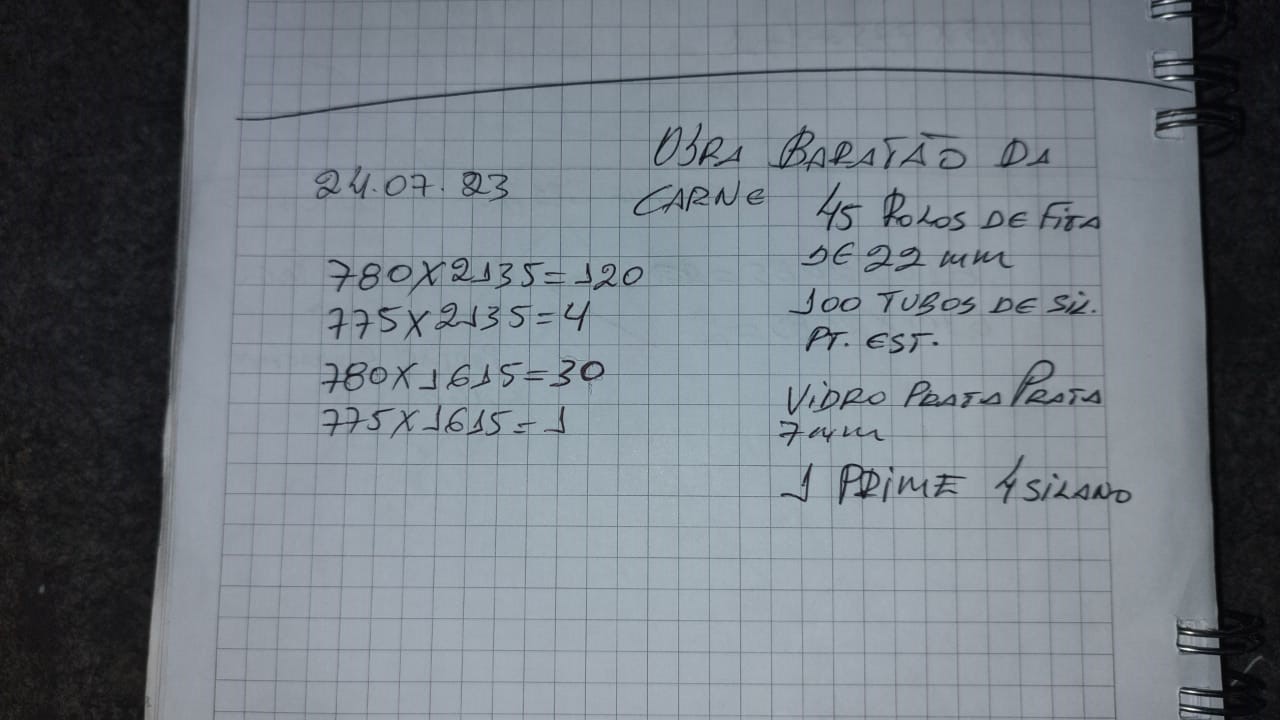 OBRA BARATÃO DA
CARNE
24.07.23
780X2135=120
775X2135=4
780X1615=30
775X1615=1
45 ROLOS DE FITA
DE 22 mm
100 TUBOS DE SIL.
PT. EST.
VIDRO PRATA PRATA
7mm
1 PRIME 4 SILANO